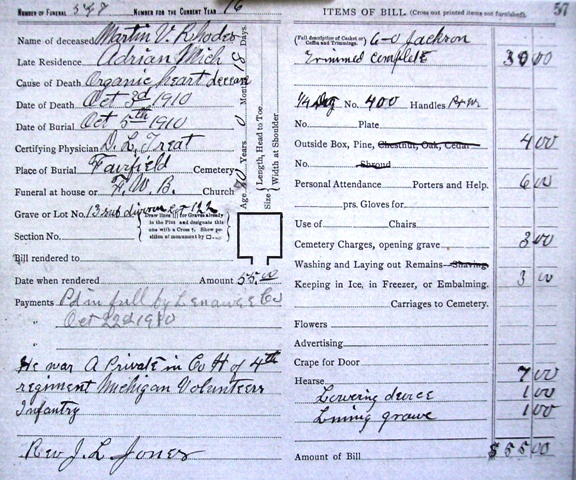 NUMBER OF FUNERAL 548 NUMBER FOR THE CURRENT YEAR 16
Name of deceased Martin V. Rhodes
Late Residence Adrian Mich
Cause of Death Organic Heart decease
Date of Death Oct 3d 1910
Date of Burial Oct 5th 1910
Certifying Physician D. L. Treat
Place of Burial Fairfield Cemetery
Funeral at house or F. W. B. Church
Age Years 0 Months 8 Days.
Size { Length, Head to Toe
Width at Shoulder
Grave or Lot No. 13 sub division of 122
Draw lines ||| for Graves already in the Plot and designate this one with a Cross †. Show position of monument by □
Section No.
Bill rendered to
Date when rendered Amount 55.00
Payments Pd in full by Lenawee Co
" Oct 22d 1910
"
He was A Private in Co H of 4th
regiment Michigan Volunteers
Infantry
Rev J. L. Jones
ITEMS OF BILL. (Cross out printed items not furnished). 57
(Full description of Casket or Coffin and Trimmings. 6-0 Jackson
Trimmed Complete 30 00
No. 400 Handles
No. Plate
Outside Box, Pine, Chestnut, Oak, Cedar 4 00
No. Shroud
Personal Attendance Porters and Help. 6 00
prs. Gloves for
Use of Chairs.
Cemetery Charges, opening grave 3 00
Washing and Laying out Remains Shaving
Keeping in Ice, in Freezer, or Embalming. 3 00
Carriages to Cemetery.
Flowers
Advertising
Crape for Door
Hearse 7 00
Lowering device 1 00
Lining grave 1 00
Amount of Bill $55 00